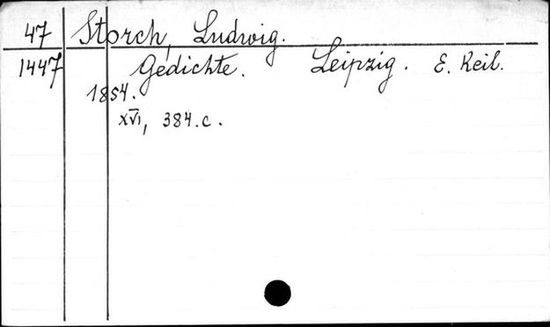 47 Storch, Ludwig.
1447 Gedichte. Leipzig. E. Keil.
1854.
XVI, 384.c.